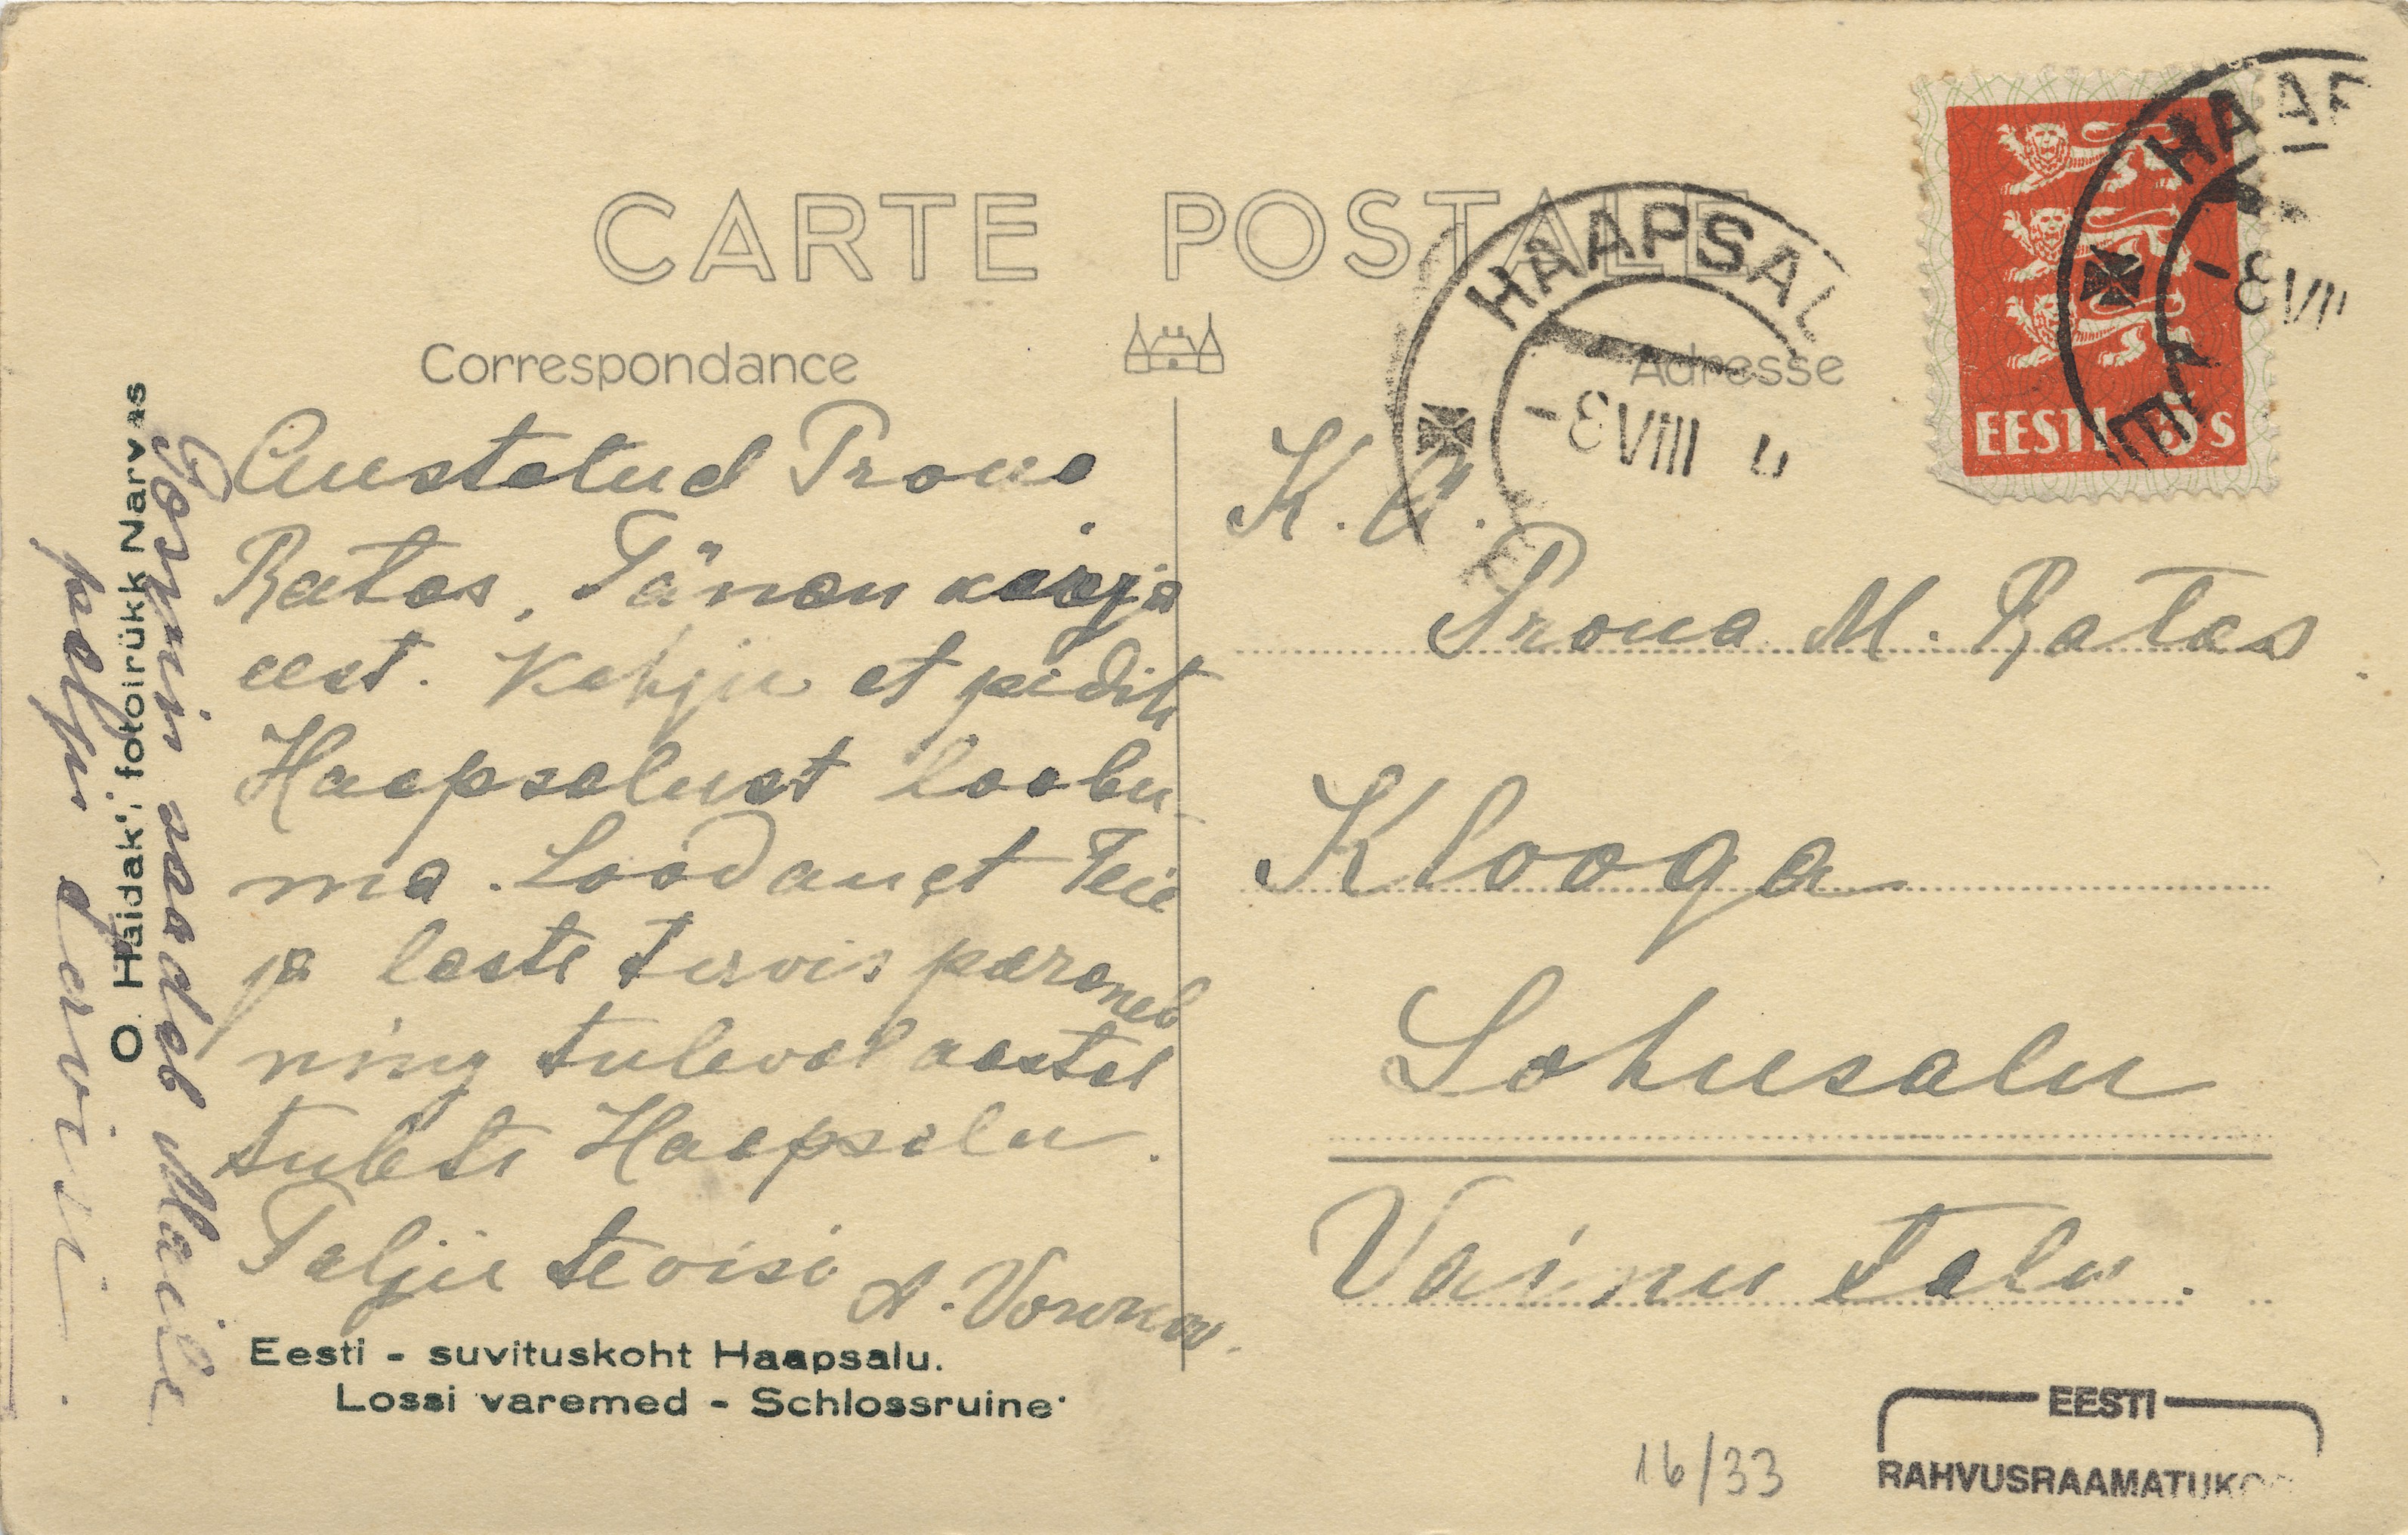 CARTE POSTALE
Correspondance
Adresse
Austatud Proua
Ratas. Tänan karja
eest. Kahju et pidite
Haapsalust loobu
ma. Loodan et Teie
ja laste tervis paraneb
ning tuleval aastal
tulete Haapsalu.
Palju tervisi
Jormin saadab Maile
palju tervisi.
O. Haidak'i fotoirükk Narvas
Eesti - suvituskoht Haapsalu.
Lossi varemed - Schlossruine
K. A.
Proua M. Ratas
Klooga
Lohusalu
Vainu talu.
HAAPSAL
-8 VIII
HAAP
-8 VII
EESTI 5 S
16/33
EESTI
RAHVUSRAAMATUKO